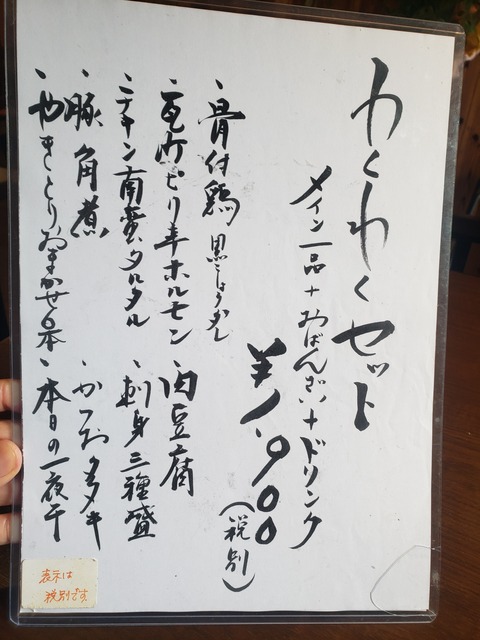 わくわくセット
メイン一品+おばんざい+ドリンク
¥1,900(税別)
、骨付鶏 黒こしょう少し
、瓦町ピリ辛ホルモン
、肉豆腐
、チキン南蛮タルタル
、刺身三種盛
、豚角煮
、かつおタタキ
、やきとりおまかせ6本
、本日の一夜干
表示は
税別です。